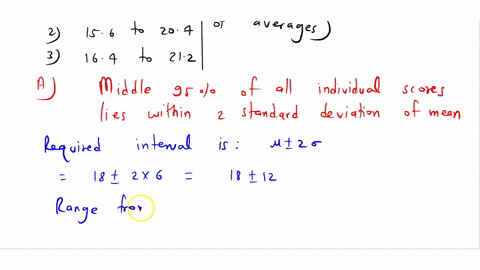 2) 15.6 to 20.4 of averages)
3) 16.4 to 21.2
A) Middle 95% of all individual scores
lies within 2 standard deviation of mean
Required interval is: μ ± 2σ
= 18 ± 2 × 6 = 18 ± 12
Range from